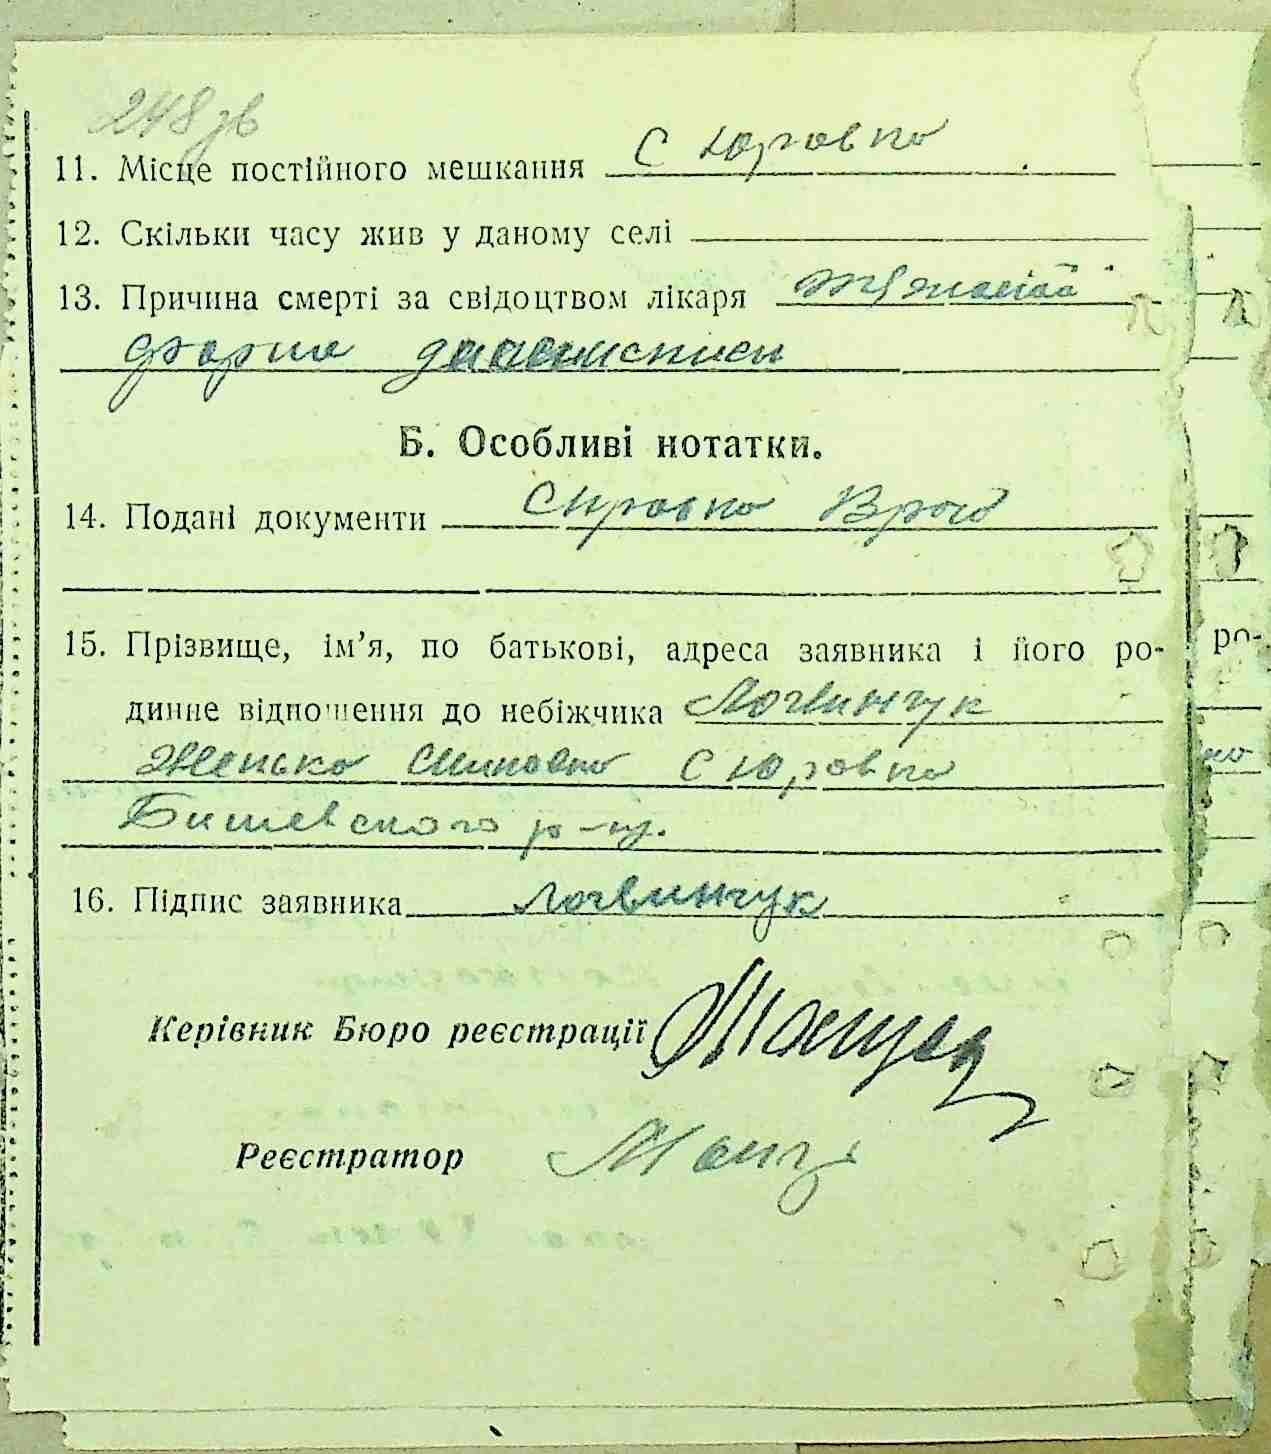 248 зв
11. Місце постійного мешкання С Юровка
12. Скільки часу жив у даному селі
13. Причина смерті за свідоцтвом лікаря
форма
Б. Особливі нотатки.
14. Подані документи Справка Врач
15. Прізвище, ім’я, по батькові, адреса заявника і його ро-
динне відношення до небіжчика Логвинчук
С Юровка
Бишевского р-ну.
16. Підпис заявника Логвинчук
Керівник Бюро реєстрації
Реєстратор
ро-